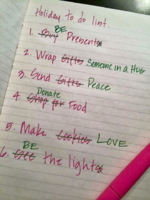 Holiday to do list
1. Buy BE Presents
2. Wrap Gifts Someone in a Hug
3. Send Gifts Peace
4. Shop for Donate Food
5. Make Cookies LOVE
6. See BE the lights